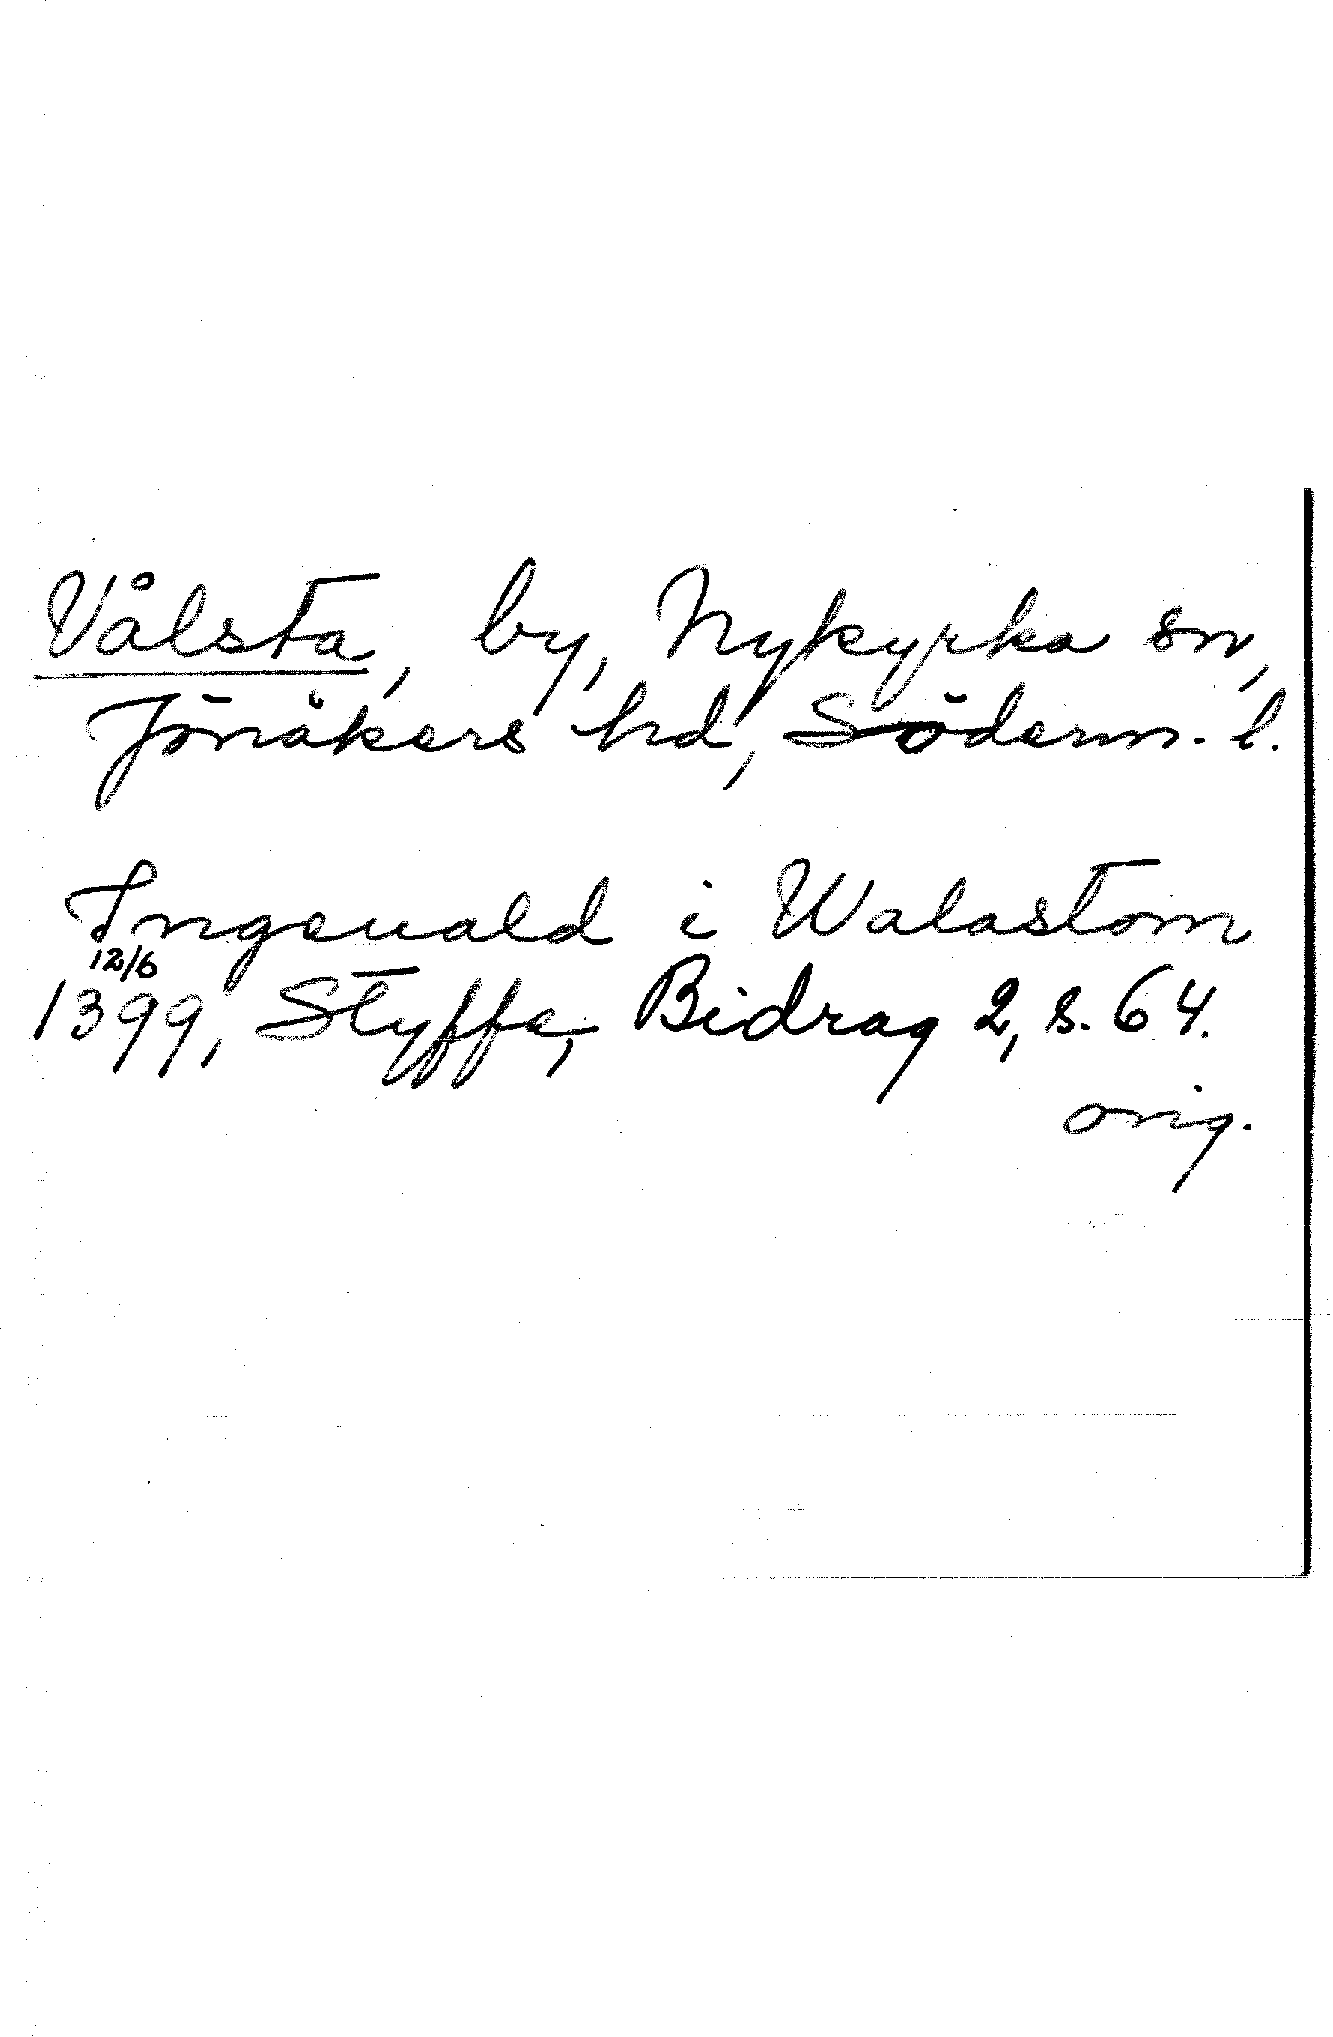 Vålsta, by, Nykyrka sn,
Jönåkers hd, Söderm. l.
Ingeuald i Walastom
12/6
1399, Styffe, Bidrag 2, s. 64.
orig.